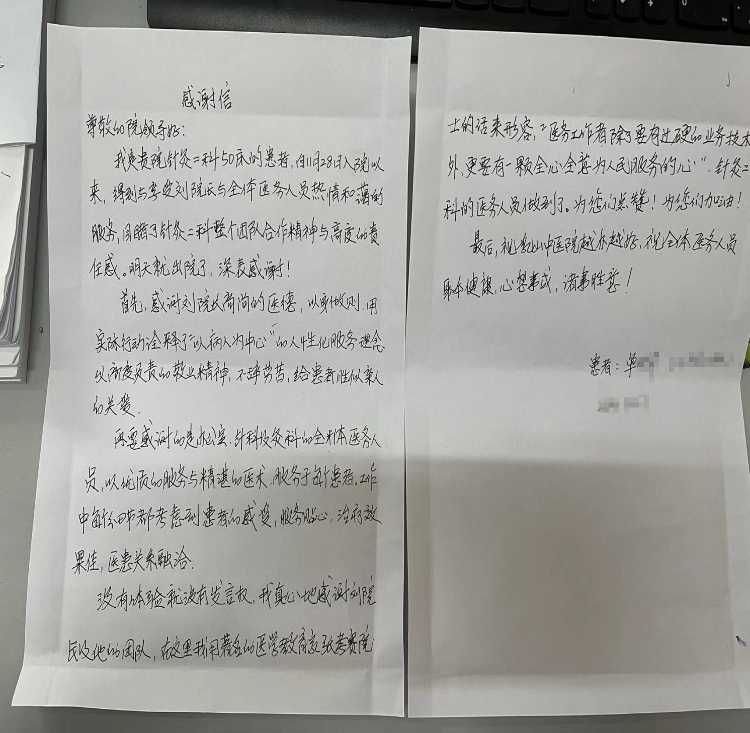 感谢信
尊敬的院领导好：
我是贵院针灸二科50床的患者，自11月28日入院以
来，得到与享受刘院长与全体医务人员热情和蔼的
服务，目睹了针灸二科整个团队合作精神与高度的责
任感。明天就出院了，深表感谢！
首先，感谢刘院长高尚的医德，以身做则，用
实际行动诠释了“以病人为中心”的人性化服务理念
以高度负责的敬业精神，不辞劳苦，给患者胜似亲人
的关爱。
再要感谢的是办公室、针科及灸科的全体医务人
员，以优质的服务与精湛的医术，服务于每个患者，工作
中每个细节都考虑到患者的感受，服务贴心，治疗效
果佳，医患关系融洽。
没有体验就没有发言权，我真心地感谢刘院
长及他的团队，在这里我用著名的医学教育家张孝骞院
士的话来形容，“医务工作者除了要有过硬的业务技术
外，更要有一颗全心全意为人民服务的心”，针灸二
科的医务人员做到了。为您们点赞！为您们加油！
最后，祝 中医院越办越好，祝全体医务人员
身体健康，心想事成，诸事胜意！
患者：单